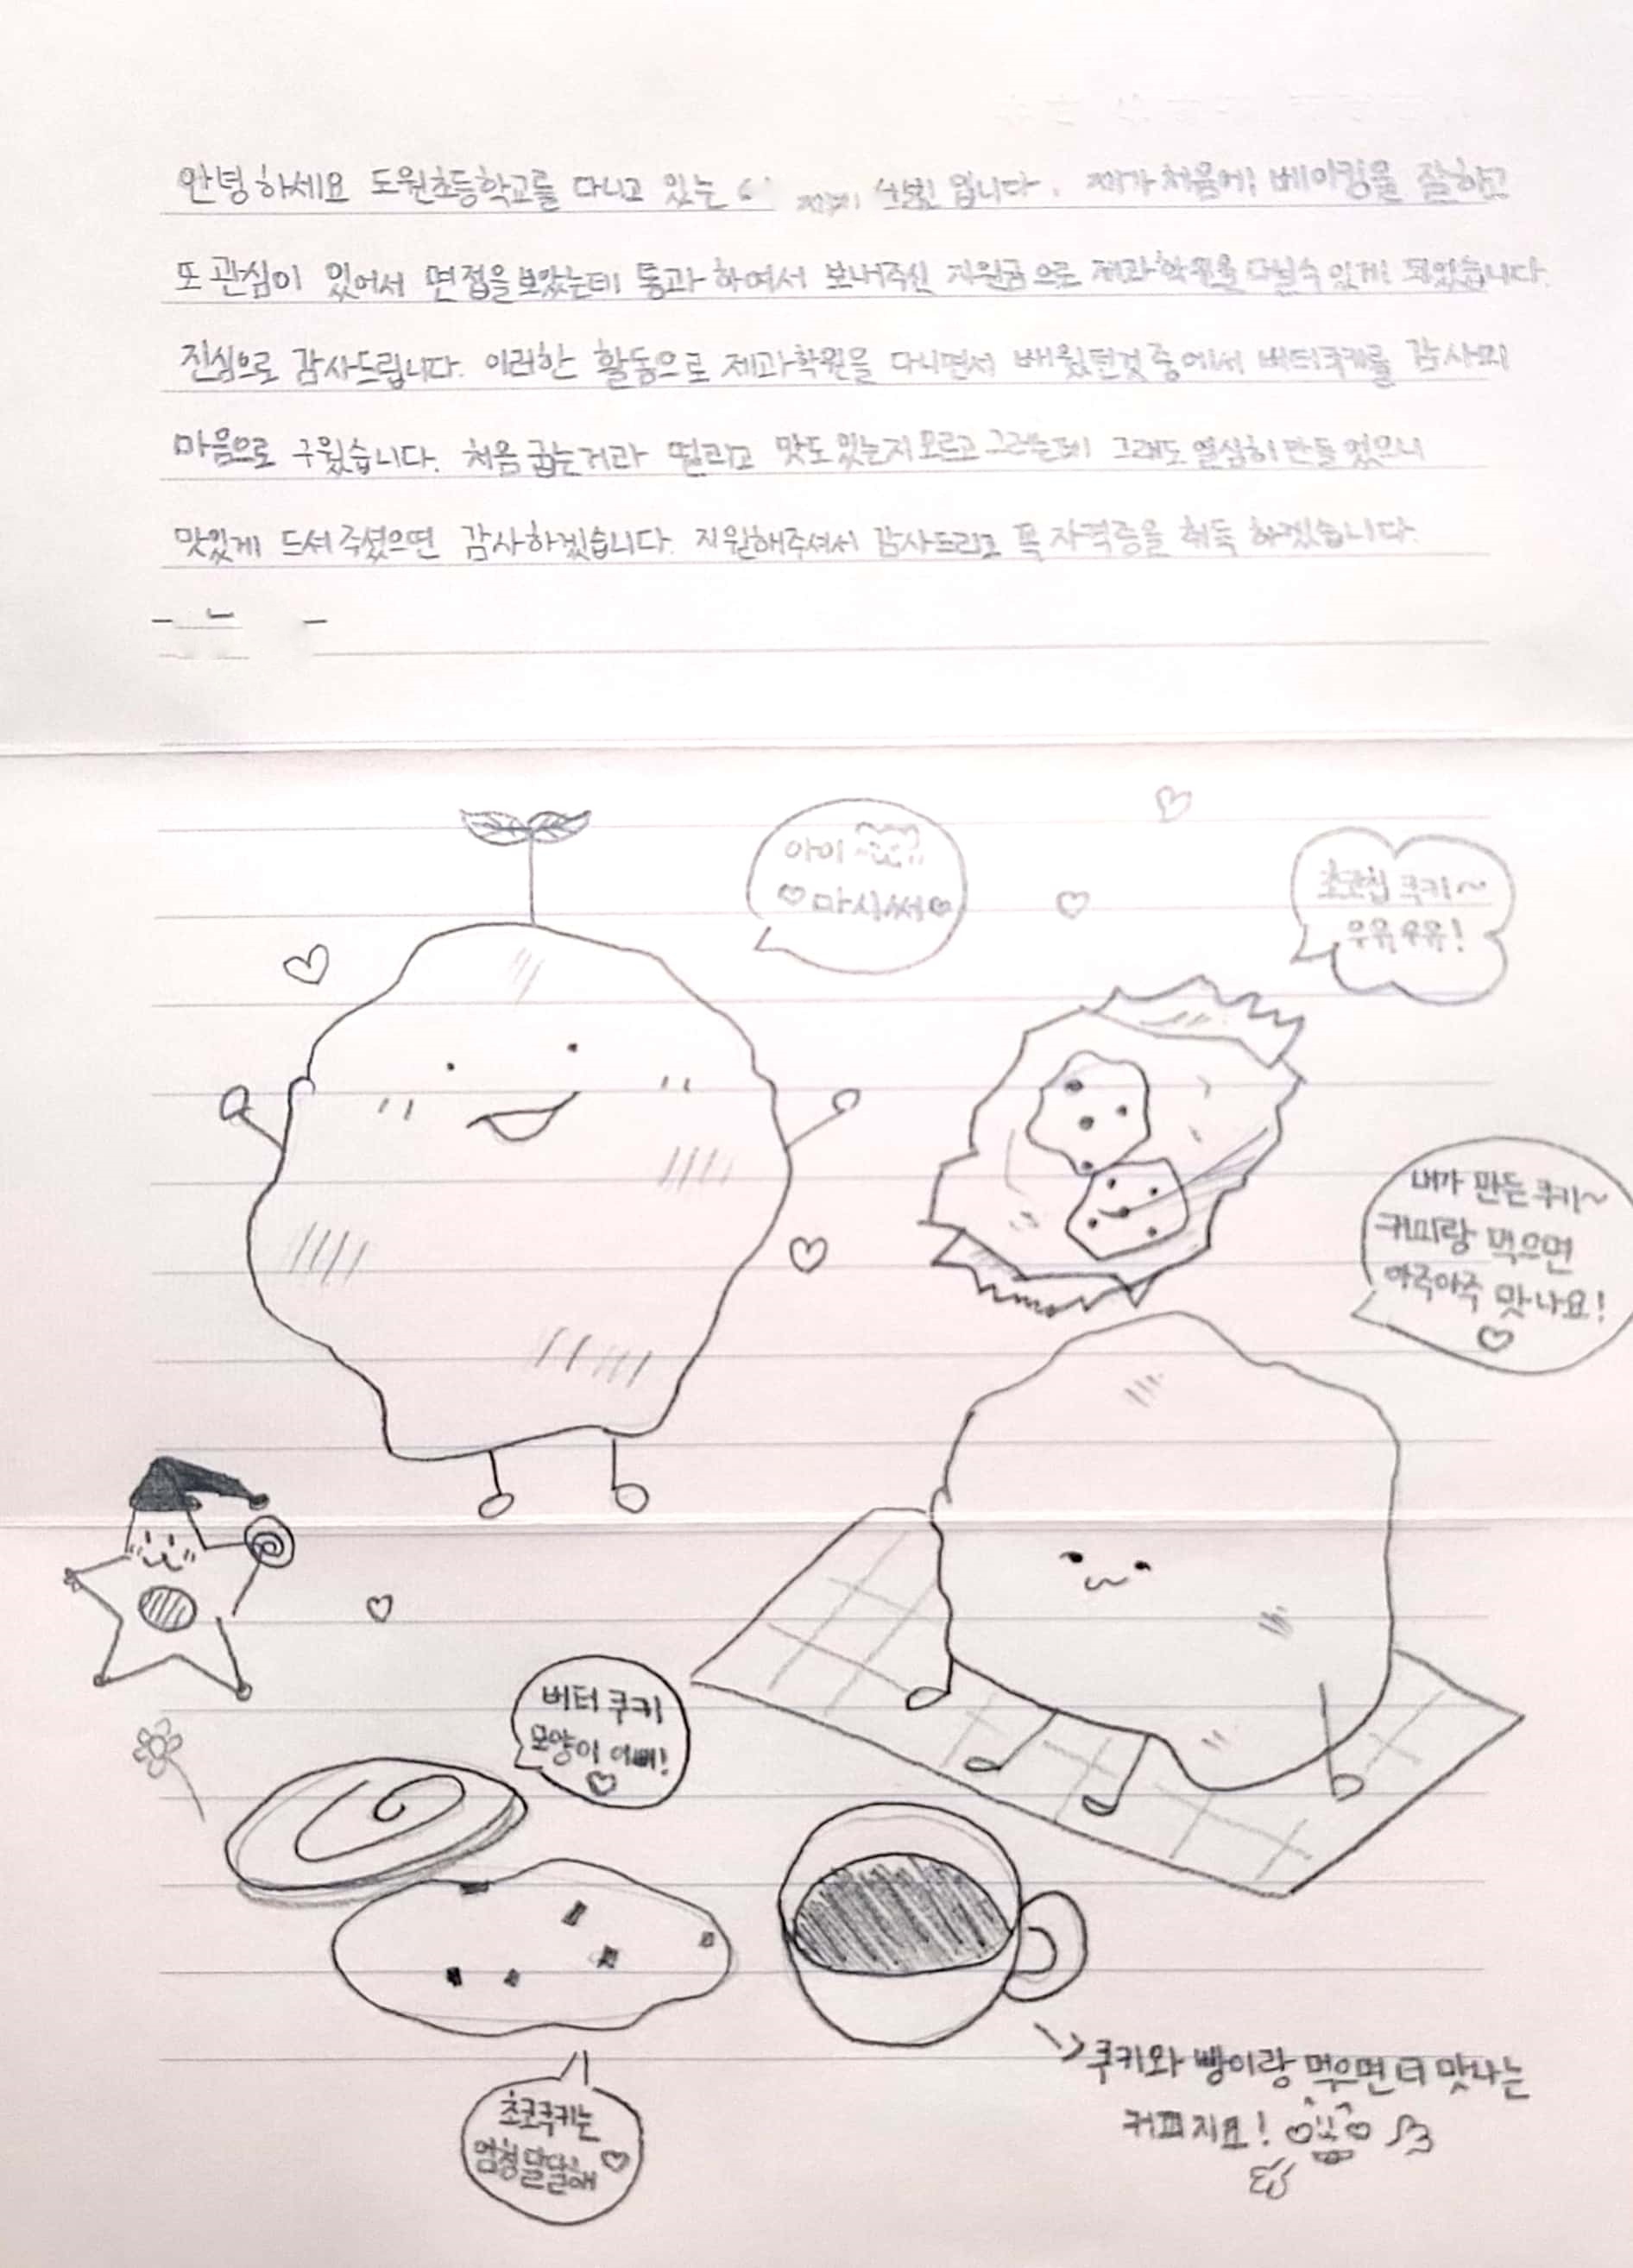 안녕하세요 도원초등학교를 다니고 있는 입니다. 제가 처음에 베이킹을 잘하고
또 관심이 있어서 면접을 보았는데 통과 하여서 보내주신 지원금으로 제과학원을 다닐수 있게 되었습니다.
진심으로 감사드립니다. 이러한 활동으로 제과학원을 다니면서 배웠던것 중에서 버터쿠키를 감사의
마음으로 구웠습니다. 처음 굽는거라 떨리고 맛도 있는지 모르고 그러는데 그래도 열심히 만들었으니
맛있게 드셔주셨으면 감사하겠습니다. 지원해주셔서 감사드리고 꼭 자격증을 취득 하겠습니다.
아이
♡마싰써♡
초코칩 쿠키~
우유우유!
내가 만든 쿠키~
커피랑 먹으면
아주아주 맛나요!
♡
버터 쿠키
모양이 이뻐!
♡
초코쿠키는
엄청 달달해♡
쿠키와 빵이랑 먹으면 더 맛나는
커피지요!